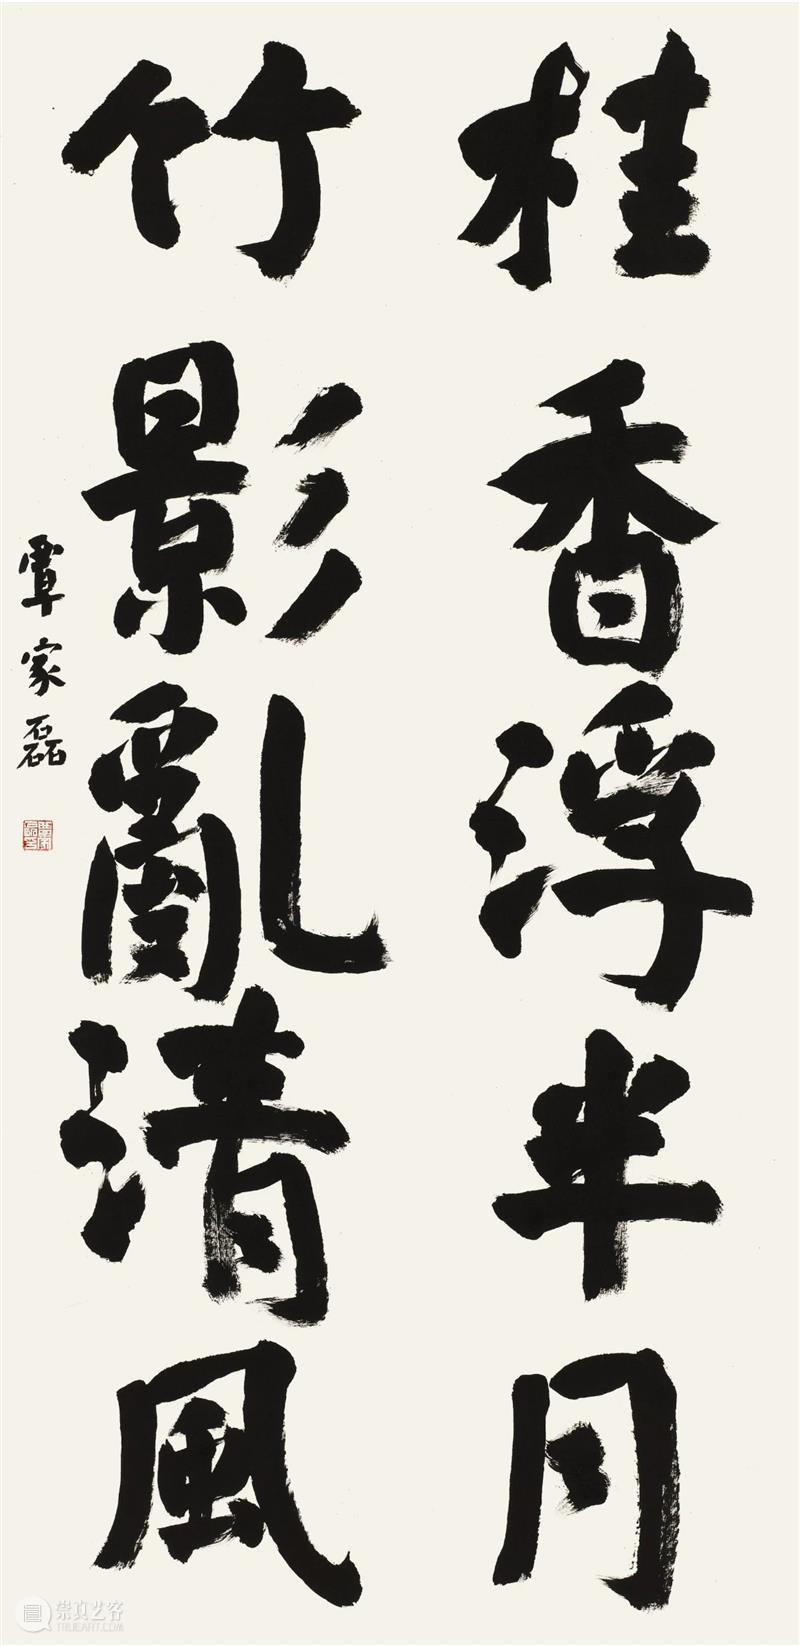 桂香浮半月
竹影亂清風
覃家磊
崇真艺客
TRUEART.COM